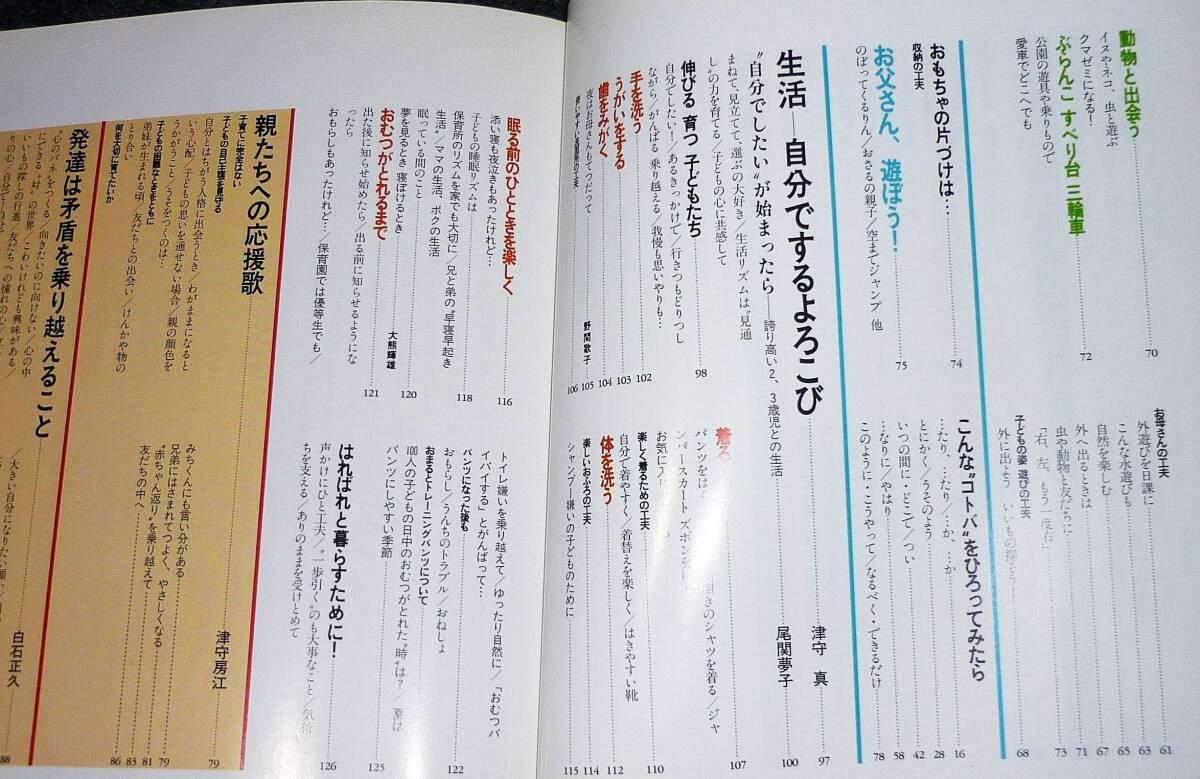 動物と出会う
イヌやネコ、虫と遊ぶ
クマゼミになる！
70
ぶらんこ すべり台 三輪車
公園の遊具や乗りもので
愛車でどこへでも
72
おもちゃの片づけは…
収納の工夫
74
お父さん、遊ぼう！
のぼってくるりん／おさるの親子／空までジャンプ 他
75
お母さんの工夫
外遊びを日課に
61
こんな水遊びも
63
自然を楽しむ
65
外へ出るときは
67
虫や動物と友だちに
71
「右、左、もう一度右」
73
子どもの姿 遊びの工夫
外に出よう
68
こんな“コトバ”をひろってみたら
…たり、…たり／…か、…か
16
とにかく／うそのよう
28
いつの間に・どこで／つい
42
…なりに／やはり
58
このように・こうやって／なるべく・できるだけ
78
生活―自分でするよろこび
“自分でしたい”が始まったら―誇り高い2、3歳児との生活
津守 真
97
まねて、見立てて、選ぶの大好き／生活リズムは“見通
し”の力を育てる／子どもの心に共感して
尾関夢子
100
伸びる 育つ 子どもたち
自分でしたい！／あるきっかけで／行きつもどりつし
ながら／がんばる 乗り越える／我慢も思いやりも…
98
手を洗う
102
うがいをする
103
歯をみがく
104
夜はお母さんもくつだって
105
使いやすい洗面所の工夫
野間歌子
106
着る
パンツをはく
107
楽しく着るための工夫
自分で着やすく／着替えを楽しく／はきやすい靴
110
体を洗う
112
楽しいおふろの工夫
114
シャンプー嫌いの子どものために
115
眠る前のひとときを楽しく
116
添い寝も夜泣きもあったけれど…
子どもの睡眠リズムは
保育所のリズムを家でも大切に／兄と弟の“早寝早起き
生活／ママの生活、ボクの生活
118
眠っている間のこと
夢を見るとき 寝ぼけるとき
120
おむつがとれるまで
大熊輝雄
121
出た後に知らせ始めたら／出る前に知らせるようにな
ったら
おもらしもあったけれど…／保育園では優等生でも／
トイレ嫌いを乗り越えて／ゆったり自然に／「おむつバ
イバイする」とがんばって…
パンツになった後も
おもらし／うんちのトラブル／おねしょ
122
おまるとトレーニングパンツについて
100人の子どもの日中のおむつがとれた“時”は？／夏は
パンツにしやすい季節
125
はればれと暮らすために！
声かけにひと工夫／“一歩引く”のも大事なこと／気持
ちを支える／ありのままを受けとめて
126
親たちへの応援歌
子育てに完全はない
自分とはちがう人格に出会うとき／わがままになると
いう心配／子どもの思いを通せない場合／親の顔色を
うかがうこと／うそをつくのは…
子どもの自己主張を見守る
子どもの困難なときをともに
弟妹が生まれる頃／友だちとの出会い／けんかや物の
とり合い
何を大切に育てたいか
津守房江
79
みちくんにも言い分がある
79
兄弟にはさまれてつよく、やさしくなる
81
“赤ちゃん返り”を乗り越えて
83
友だちの中へ
86
発達は矛盾を乗り越えること
“心のバネ”をつくる／向きたいのに向けない／心の中
にできる“対”の世界／こわいけれども興味がある／
いいもの探しの行進／友だちへの憧れの心
白石正久
88